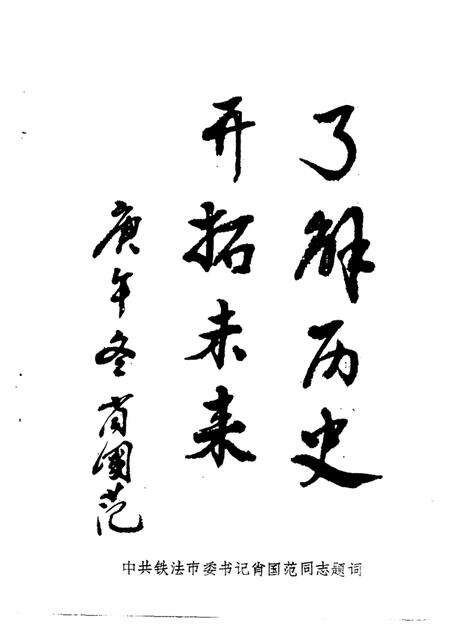 了解历史
开拓未来
庚午冬肖国范
中共铁法市委书记肖国范同志题词